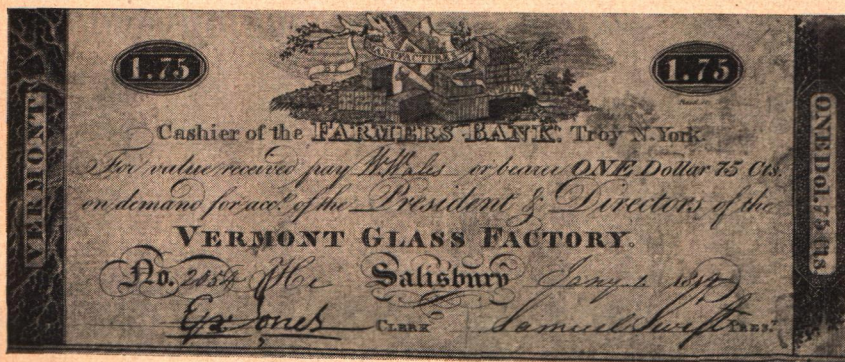 MANUFACTURES
1.75 1.75
Cashier of the FARMERS BANK: Troy N. York.
For value received pay W Wales or bearer ONE Dollar 75 Cts.
on demand for acct. of the President & Directors of the
VERMONT GLASS FACTORY.
No. 2054 Salisbury Jany 1
Ep. Jones CLERK Samuel Swift PREST.
VERMONT
ONE Dol. 75 Cts